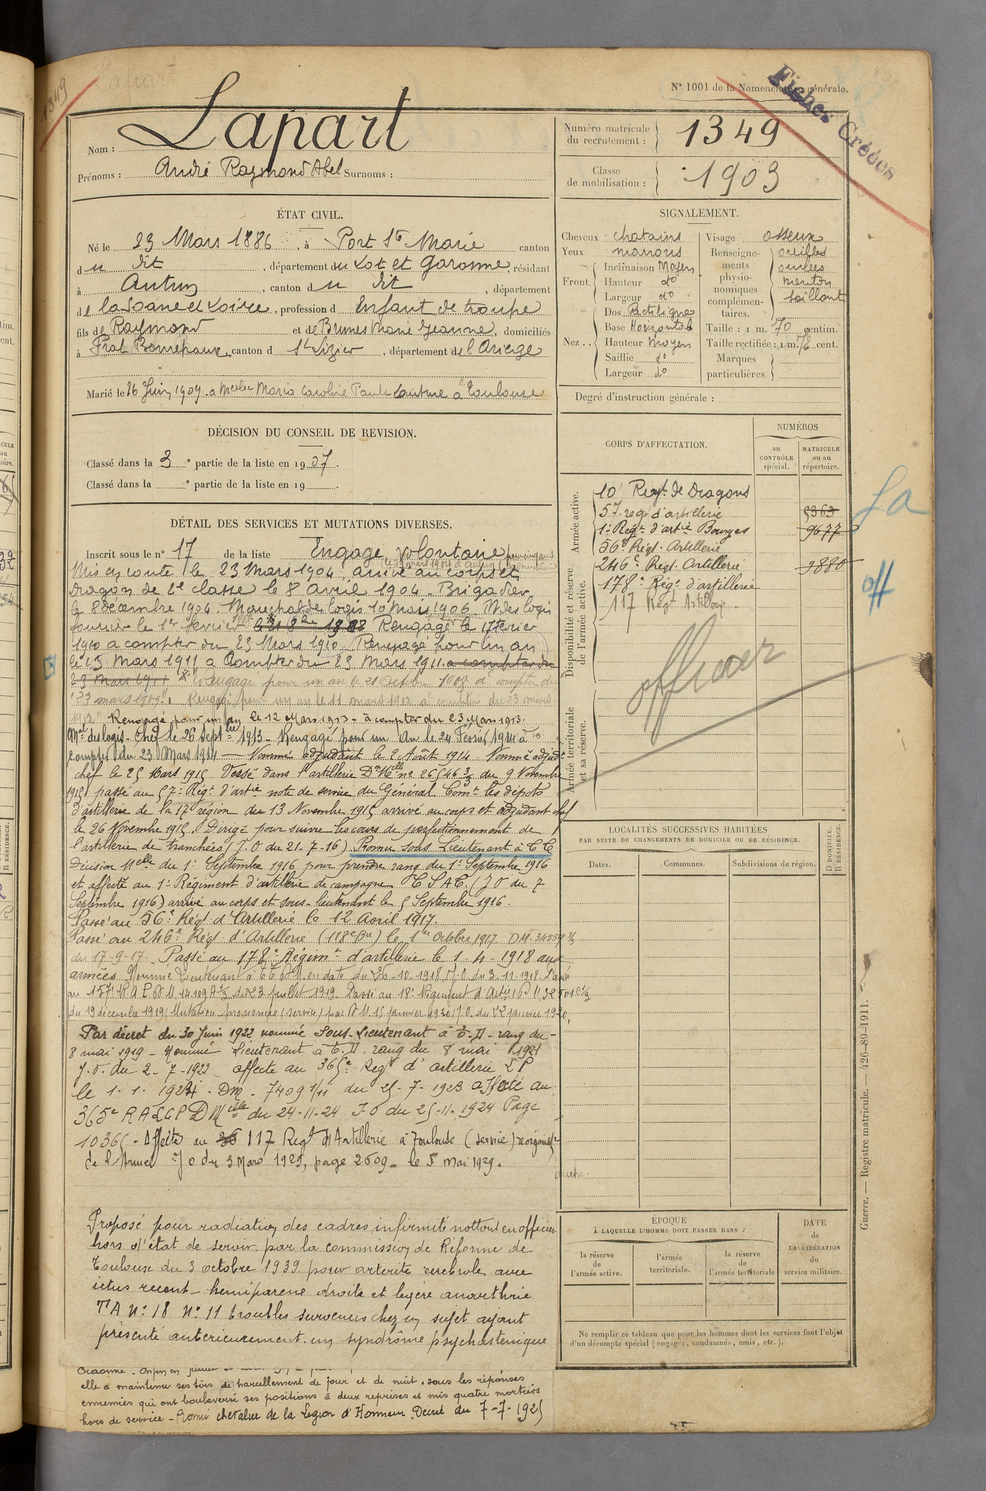 1349
N° 1001 de la Nomenclature générale.
Fiches Créées
Nom : Lapart
Prénoms : André Raymond Abel Surnoms :
Numéro matricule du recrutement : 1349
Classe de mobilisation : 1903
ÉTAT CIVIL.
Né le 23 Mars 1886, à Port Ste Marie canton
du dit, département du Lot et Garonne, résidant
à Autun, canton du dit, département
de la Saone et Loire, profession d Enfant de troupe
fils de Raymond et de Brunes Marie Jeanne, domiciliés
à Prat Bonrepaux, canton d St Lizier, département de l'Ariège
Marié le 26 Juin 1909 à Melle Maria Caroline Paule Couture à Toulouse
SIGNALEMENT.
Cheveux chatains
Yeux marrons
Front. Inclinaison Moyen
Hauteur do
Largeur do
Nez. Dos Rectiligne
Base Horizontale
Hauteur Moyen
Saillie do
Largeur do
Visage osseux
Renseignements physionomiques complémentaires. oreilles ourlées menton saillant
Taille : 1 m. 70 centim.
Taille rectifiée : 1 m. 76 cent.
Marques particulières.
Degré d'instruction générale :
DÉCISION DU CONSEIL DE REVISION.
Classé dans la 3e partie de la liste en 1907.
Classé dans la e partie de la liste en 19
CORPS D'AFFECTATION.
NUMÉROS
au CONTRÔLE spécial.
MATRICULE ou au répertoire.
Armée active.
Disponibilité et réserve de l'armée active.
Armée territoriale et sa réserve.
10e Regt de Dragons
57 reg d'artillerie 5363
1er Regt d'artie Bourges 9677
56e Régt Artillerie
246e Régt Artillerie 9880
178e Régt d'artillerie
117 Regt Artillerie
officier
La
off
DÉTAIL DES SERVICES ET MUTATIONS DIVERSES.
Inscrit sous le n° 17 de la liste Engagé volontaire pour cinq ans
Mis en route le 23 Mars 1904, arrivé au corps et
Dragon de 2e classe le 8 avril 1904. Brigadier
le 8 décembre 1904. Marechal des logis 10 Mars 1906. M des logis
fourrier le 1er fevrier Rengagé le 17 fevrier
1910 a compter du 23 Mars 1910. Rengagé pour un an
le 15 Mars 1911 a Compter du 23 Mars 1911. a compter du
23 Mars 1911 Rengagé pour un an le 21 Octobre 1908 à compter du
23 mars 1909. Rengagé pour un an le 11 mars 1912 à compter du 23 mars
1912 Rengagé pour un an le 12 Mars 1913 - à compter du 23 Mars 1913.
Mal des logis-Chef le 26 Septbre 1913 - Rengagé pour un an le 24 Février 1914 à
compter du 23 Mars 1914 - Nommé adjudant le 2 Août 1914. Nommé adjudt
chef le 25 Mars 1915. Passé dans l'artillerie Don Mlle no 26546 3/3 du 9 Novembre
1915 passé au 57e Regt d'artie note de service du Général Comt les dépots
d'artillerie de la 17e région du 13 Novembre 1915 arrivé au corps et adjudant chef
le 26 Novembre 1915. Dirigé pour suivre les cours de perfectionnement de
l'artillerie de tranchées (J.O du 21-7-16) Promu sous Lieutenant à T.T.
Décision Mlle du 1er Septembre 1916 pour prendre rang du 1er Septembre 1916
et affecté au 1er Régiment d'artillerie de campagne (J O du 7
Septembre 1916) arrivé au corps et sous-lieutenant le 5 Septembre 1916.
Passé au 56e Régt d'Artillerie le 12 avril 1917.
Passé au 246e Régt d'Artillerie (118e Bie) le 1er Octobre 1917 DM 34259 3/3
du 17-9-17. Passé au 178e Régiment d'artillerie le 1-4-1918 aux
armées. Nommé Lieutenant à T.T. D.M. en date du 26-10-1918 J.O du 3-11-1918. Passé
au 157e R A P D M 14109 3/3 du 23 juillet 1919. Passé au 18e Régiment d'Artie D M 32501 3/3
du 19 décembre 1919. Mutation prononcée (service) par D M 15 janvier 1920 J.O du 22 janvier 1920.
Par décret du 30 Juin 1922 nommé Sous-Lieutenant à T.D. rang du
8 mai 1919 - Nommé Lieutenant à T.D. rang du 8 mai 1921
J.O. du 2-7-1922 affecté au 365e Regt d'artillerie L P
le 1.1.1924. DM. 7409 1/11 du 25-7-1923 affecté au
365e R A L G P D Melle du 24-11-24 J.O du 25-11-1924 Page
10365 - Affecté au 117 Regt d'Artillerie à Toulouse (service) réorganisn
de l'Armée J O du 3 Mars 1929, page 2609 - le 5 mai 1929.
Proposé pour radiation des cadres infirmité
hors d'état de servir par la commission de Réforme de
Toulouse du 3 octobre 1939 pour arterite cerebrale avec
ictus recent - hemiparesie droite et legère anarthrie
n° 18 n° 11 troubles survenus chez un sujet ayant
présenté antérieurement un syndrôme psychasténique
elle a maintenu ses tirs de harcellement de jour et de nuit, sous les réponses
ennemies qui ont bouleversé ses positions à deux reprises et mis quatre mortiers
hors de service - Promu chevalier de la Légion d'Honneur Décret du 7-7-1925
LOCALITÉS SUCCESSIVES HABITÉES
PAR SUITE DE CHANGEMENTS DE DOMICILE OU DE RÉSIDENCE.
Dates.
Communes.
Subdivisions de région.
D DOMICILE. R RÉSIDENCE.
ÉPOQUE
À LAQUELLE L'HOMME DOIT PASSER DANS :
la réserve de l'armée active.
l'armée territoriale.
la réserve de l'armée territoriale
DATE de LA LIBÉRATION du service militaire.
Ne remplir ce tableau que pour les hommes dont les services font l'objet
d'un décompte spécial (engagés, condamnés, omis, etc.).
Guerre. — Registre matricule. — 426-89-1911.